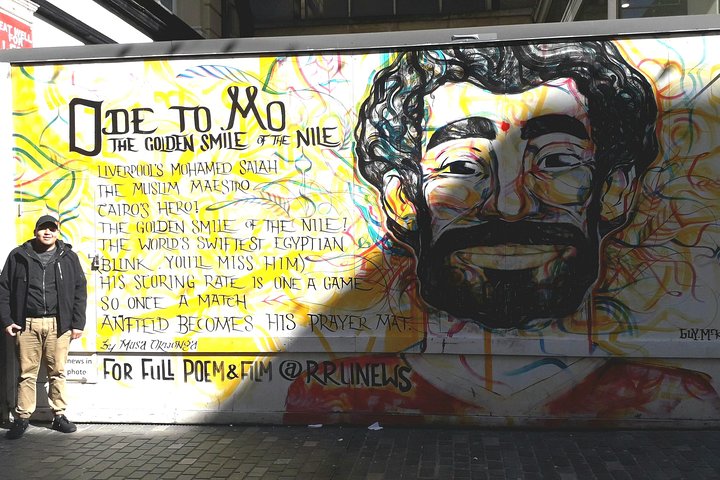 ODE TO MO
THE GOLDEN SMILE OF THE NILE
LIVERPOOL'S MOHAMED SALAH
THE MUSLIM MAESTRO
CAIRO'S HERO!
THE GOLDEN SMILE OF THE NILE!
THE WORLD'S SWIFTEST EGYPTIAN
(BLINK YOU'LL MISS HIM)
HIS SCORING RATE IS ONE A GAME
SO ONCE A MATCH
ANFIELD BECOMES HIS PRAYER MAT.
By MUSA OKWONGA
FOR FULL POEM & FILM @RRUNEWS
news in
photo
GUY.